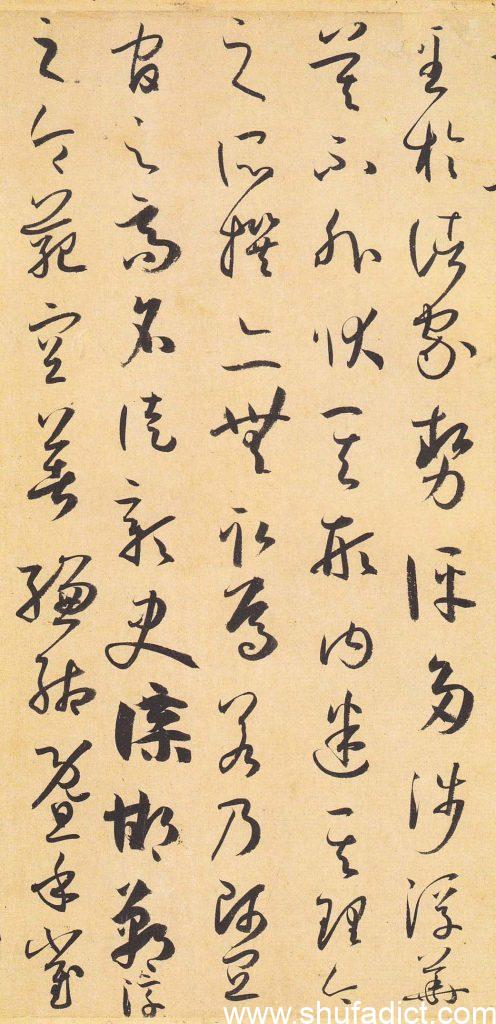 至於諸家勢評多涉浮華
莫不外狀其形內迷其理今
之所撰亦無取焉若乃師宜
官之高名徒彰史諜邯鄲淳
之令範空著縑緗暨乎崔
www.shufadict.com